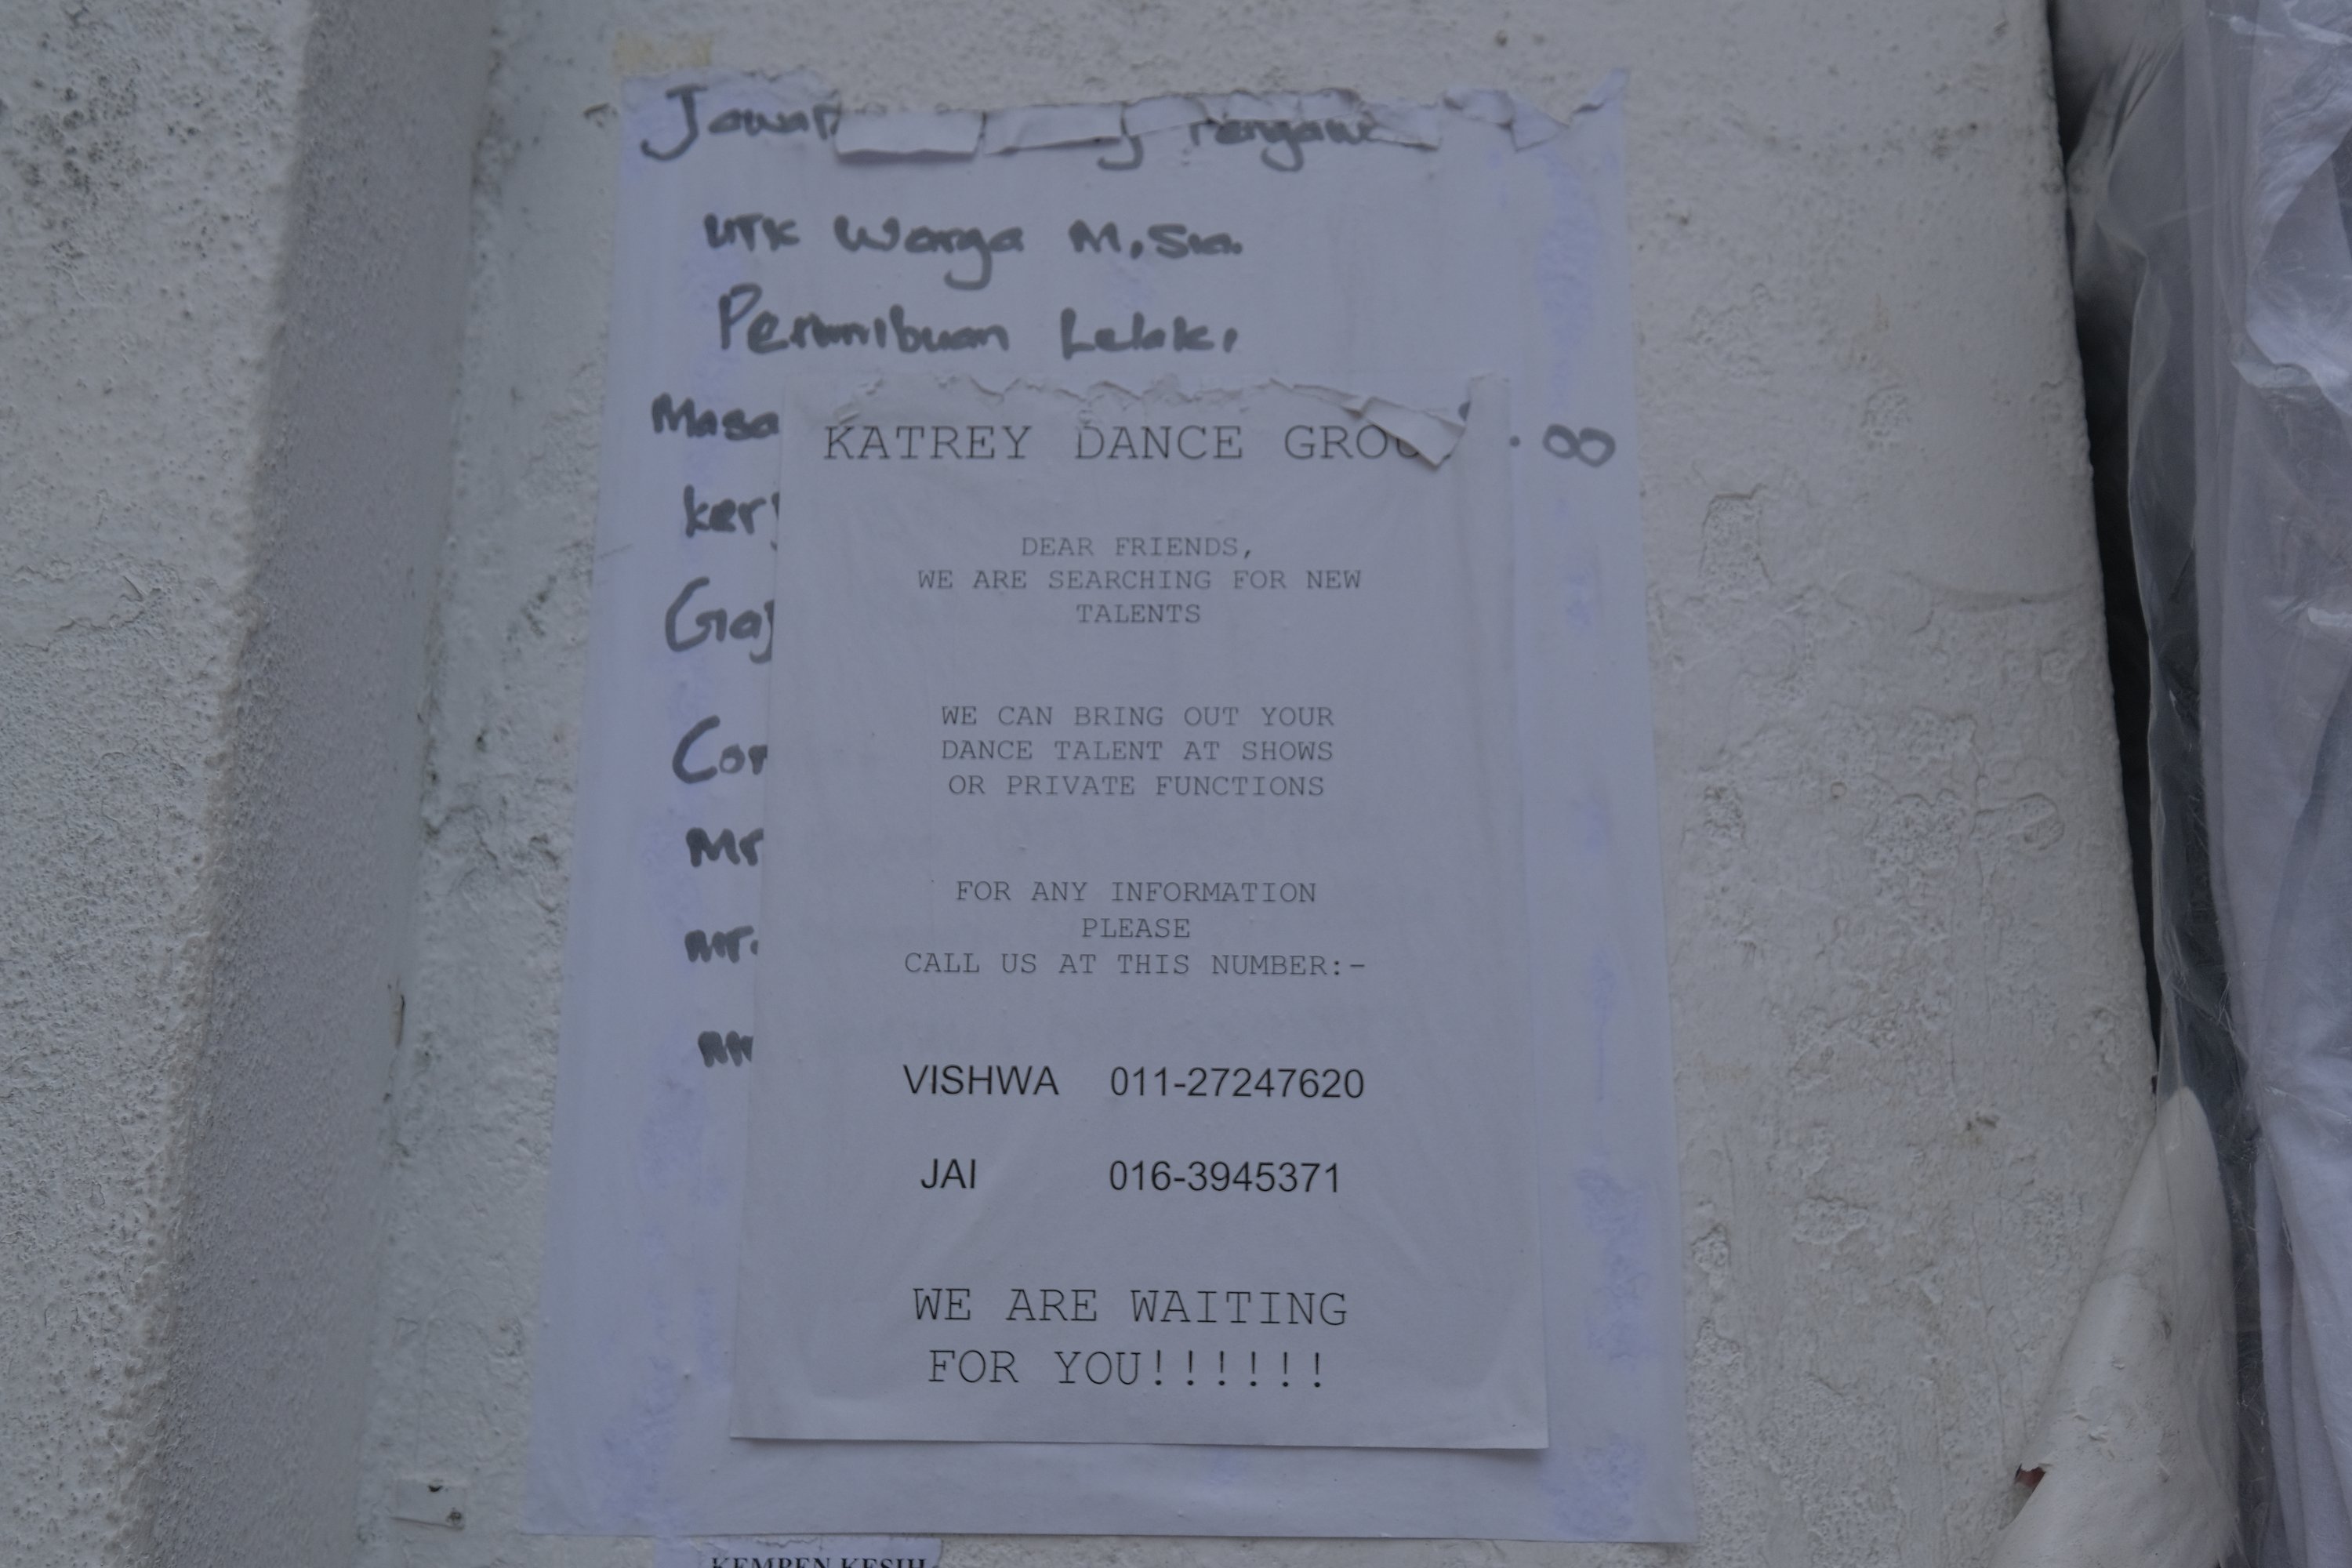 Jawat
UTK Warga M.Sia.
Perimibuan Lelaki
Masa .00
kerj
Gaj
Con
Mr
Mr.
KATREY DANCE GROUP
DEAR FRIENDS,
WE ARE SEARCHING FOR NEW
TALENTS
WE CAN BRING OUT YOUR
DANCE TALENT AT SHOWS
OR PRIVATE FUNCTIONS
FOR ANY INFORMATION
PLEASE
CALL US AT THIS NUMBER:-
VISHWA 011-27247620
JAI 016-3945371
WE ARE WAITING
FOR YOU!!!!!!
KEMPEN KESIH